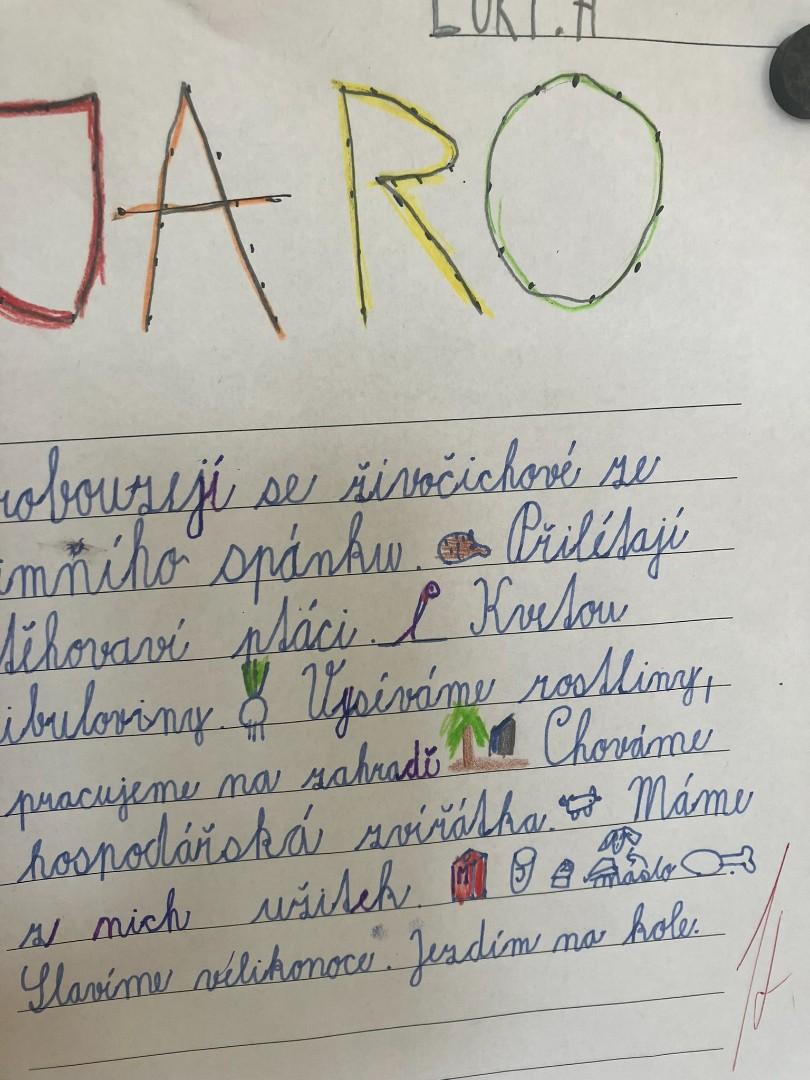 LUKI.A
JARO
robouzejí se živočichové ze
imního spánku. Přilétají
těhovaví ptáci. Kvetou
ibuloviny. Vyséváme rostliny,
pracujeme na zahradě Chováme
hospodářská zvířátka. Máme
z nich užitek. M máslo
Slavíme vélikonoce. Jezdím na kole.